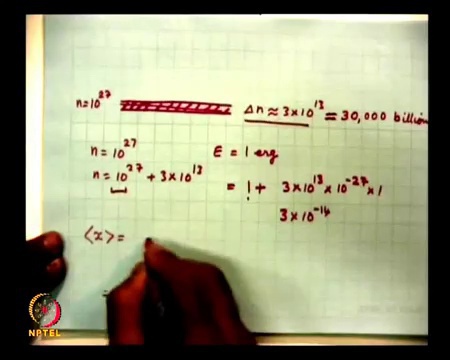 n=10^27 Δn ≈ 3×10^13 = 30,000 billion
n = 10^27 E = 1 erg
n = 10^27 + 3×10^13 = 1 + 3×10^13 × 10^-27 × 1
3×10^-14
⟨x⟩ =
NPTEL